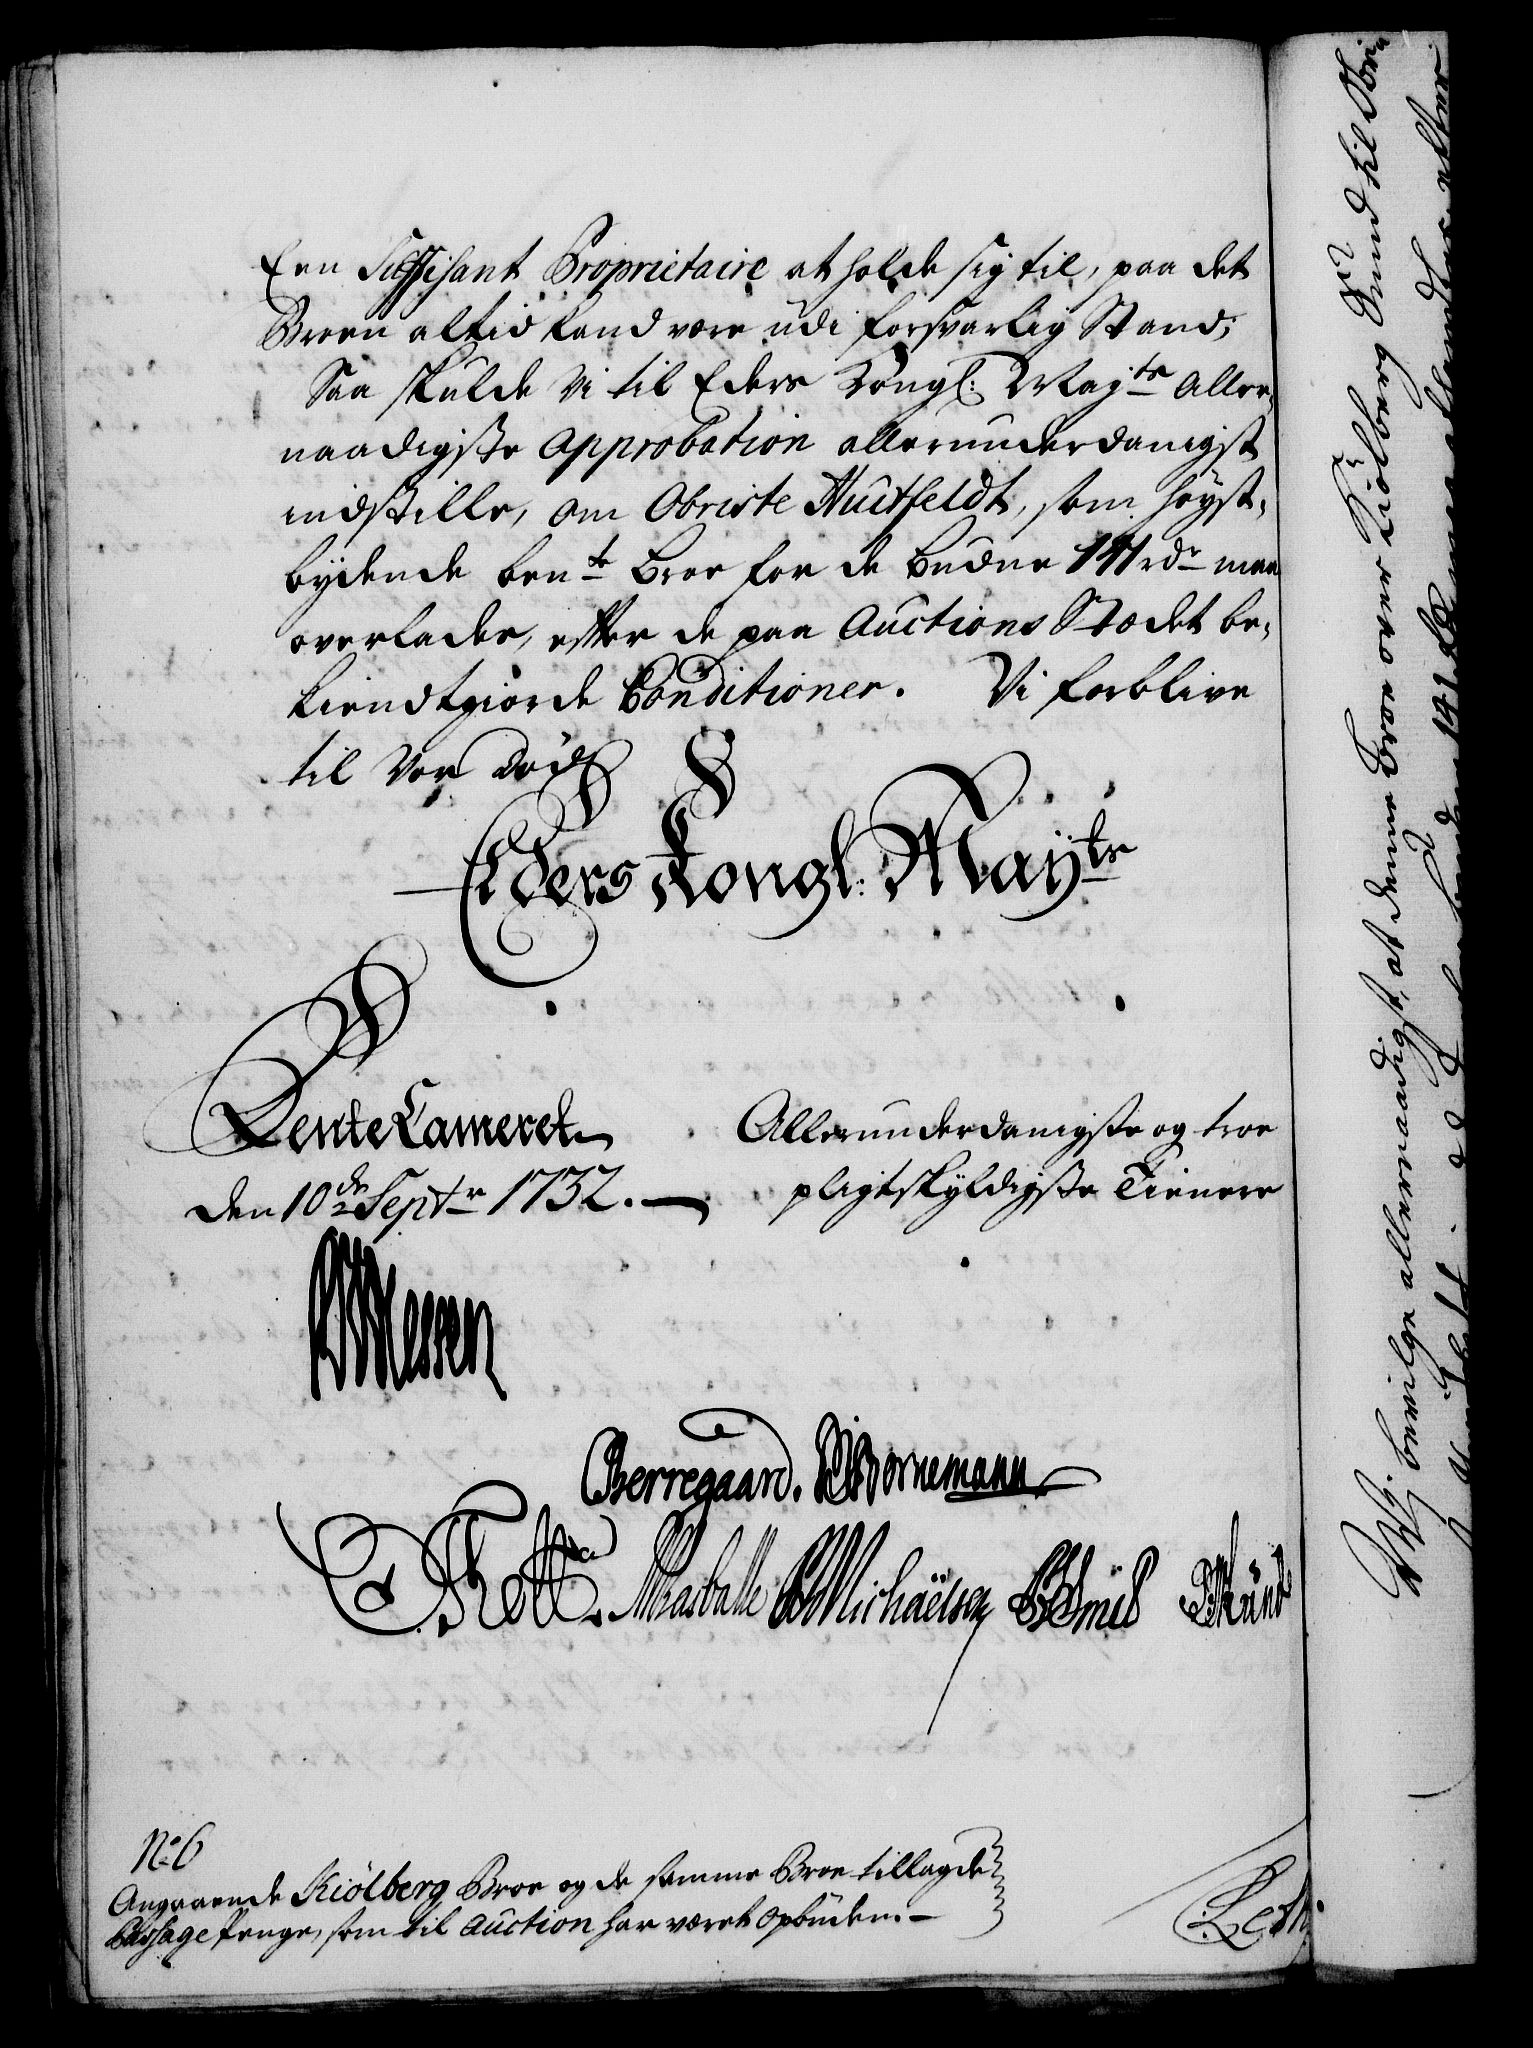 Een Suffisant Proprietaire at holde sig til, paa det
Broen altid kand være udi forsvarlig Stand;
Saa skulde Vi til Eders Kongl: Mayts Aller-
naadigste Approbation allerunderdanigst
indstille, om Obriste Huitfeldt, som høyst-
bydende bente Broe for de budne 141 rdr maa
overlades, efter de paa Auctions Stædet be-
kiendtgiorde Conditioner. Vi forblive
til Vor Død
Eders Kongl: Mayts
RenteCameret
den 10de Septr 1732.
Allerunderdanigste og troe
pligtskyldigste Tienere
Berregaard. Bornemann
Thott. Michaëlsen
No 6
Angaaende Kiölberg Broe og de samme Broe tillagde
Passage Penge, som til Auction har været opbuden.
Wj bevilge allernaadigst, at denne Broe over Kiölberg Sund til
141